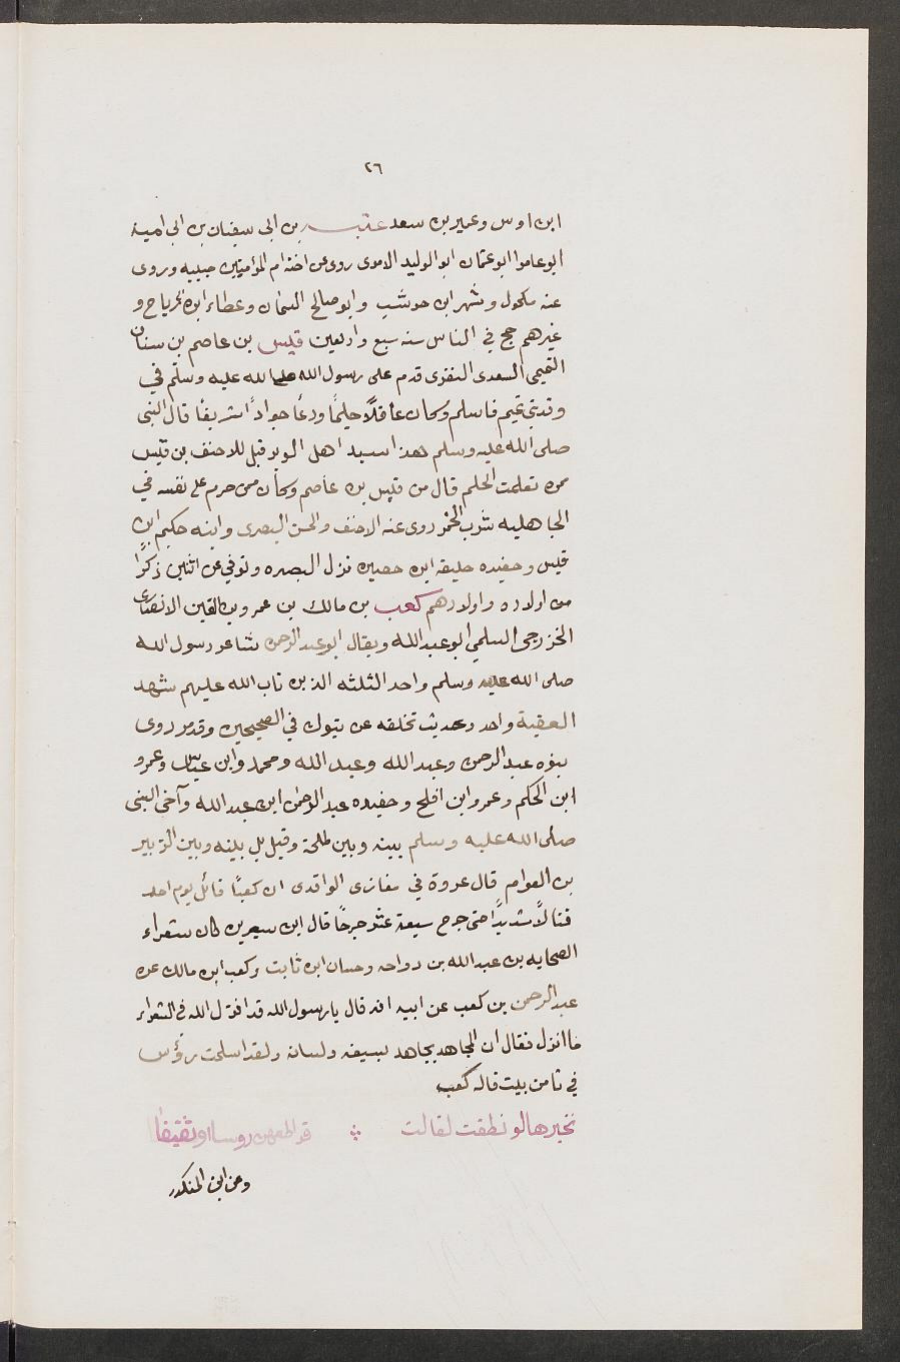 ٢٦
ابن اوس وعمير بن سعد عتبـــه بن ابى سفيان بن ابى امية
ابو عامر ابو عثمان ابو الوليد الاموى روى عن اخته ام المؤمنين حبيبه وروى
عنه مكحول وشهر ابن حوشب وابو صالح السمان وعطاء ابن ابى رباح و
غيرهم حج في الناس سنه سبع واربعين قيس بن عاصم بن سنان
التميمى السعدى المنقرى قدم على رسول الله صلى الله عليه وسلم في
وفد بنى تميم فاسلم وكان عاقلاً حليمًا ودعًا جواداً شريفًا قال النبى
صلى الله عليه وسلم هذا سيد اهل الوبر وقيل للاحنف بن قيس
ممن تعلمت الحلم قال من قيس بن عاصم وكان ممن حرم على نفسه في
الجاهليه شرب الخمر روى عنه الاحنف والحسن البصرى وابنه حكيم ابن
قيس وحفيده خليفه ابن حصين نزل البصره وتوفي عن اثنين ذكرًا
من اولاده واولادهم كعب بن مالك بن عمرو بن القين الانصارى
الخزرجى السلمى ابو عبد الله ويقال ابو عبد الرحمن شاعر رسول الله
صلى الله عليه وسلم واحد الثلثه الذين تاب الله عليهم شهد
العقبة واحد وحديث تخلفه عن تبوك في الصحيحين وقدم روى
بنوه عبد الرحمن وعبد الله وعبيد الله ومحمد وابن عباس وعمرو
ابن الحكم وعمرو ابن افلح وحفيده عبد الرحمن ابن عبد الله وآخى النبى
صلى الله عليه وسلم بينه وبين طلحة وقيل بل بينه وبين الزبير
بن العوام قال عروة في مغازى الواقدى ان كعبًا قاتل يوم احد
قتالاً شديدًا حتى جرح سبعة عشر جرحًا قال ابن سيرين كان شعراء
الصحابه بن عبد الله بن رواحه وحسان ابن ثابت وكعب ابن مالك عن
عبد الرحمن بن كعب عن ابيه انه قال يا رسول الله قد انزل الله في الشعراء
ما انزل فقال ان المجاهد يجاهد بسيفه ولسانه ولقد اسلمت رؤس
في ثامن بيت قاله كعب
نخبرها لو نطقت لقالت ؞ دوسا او ثقيفا
وعن ابن المنكدر